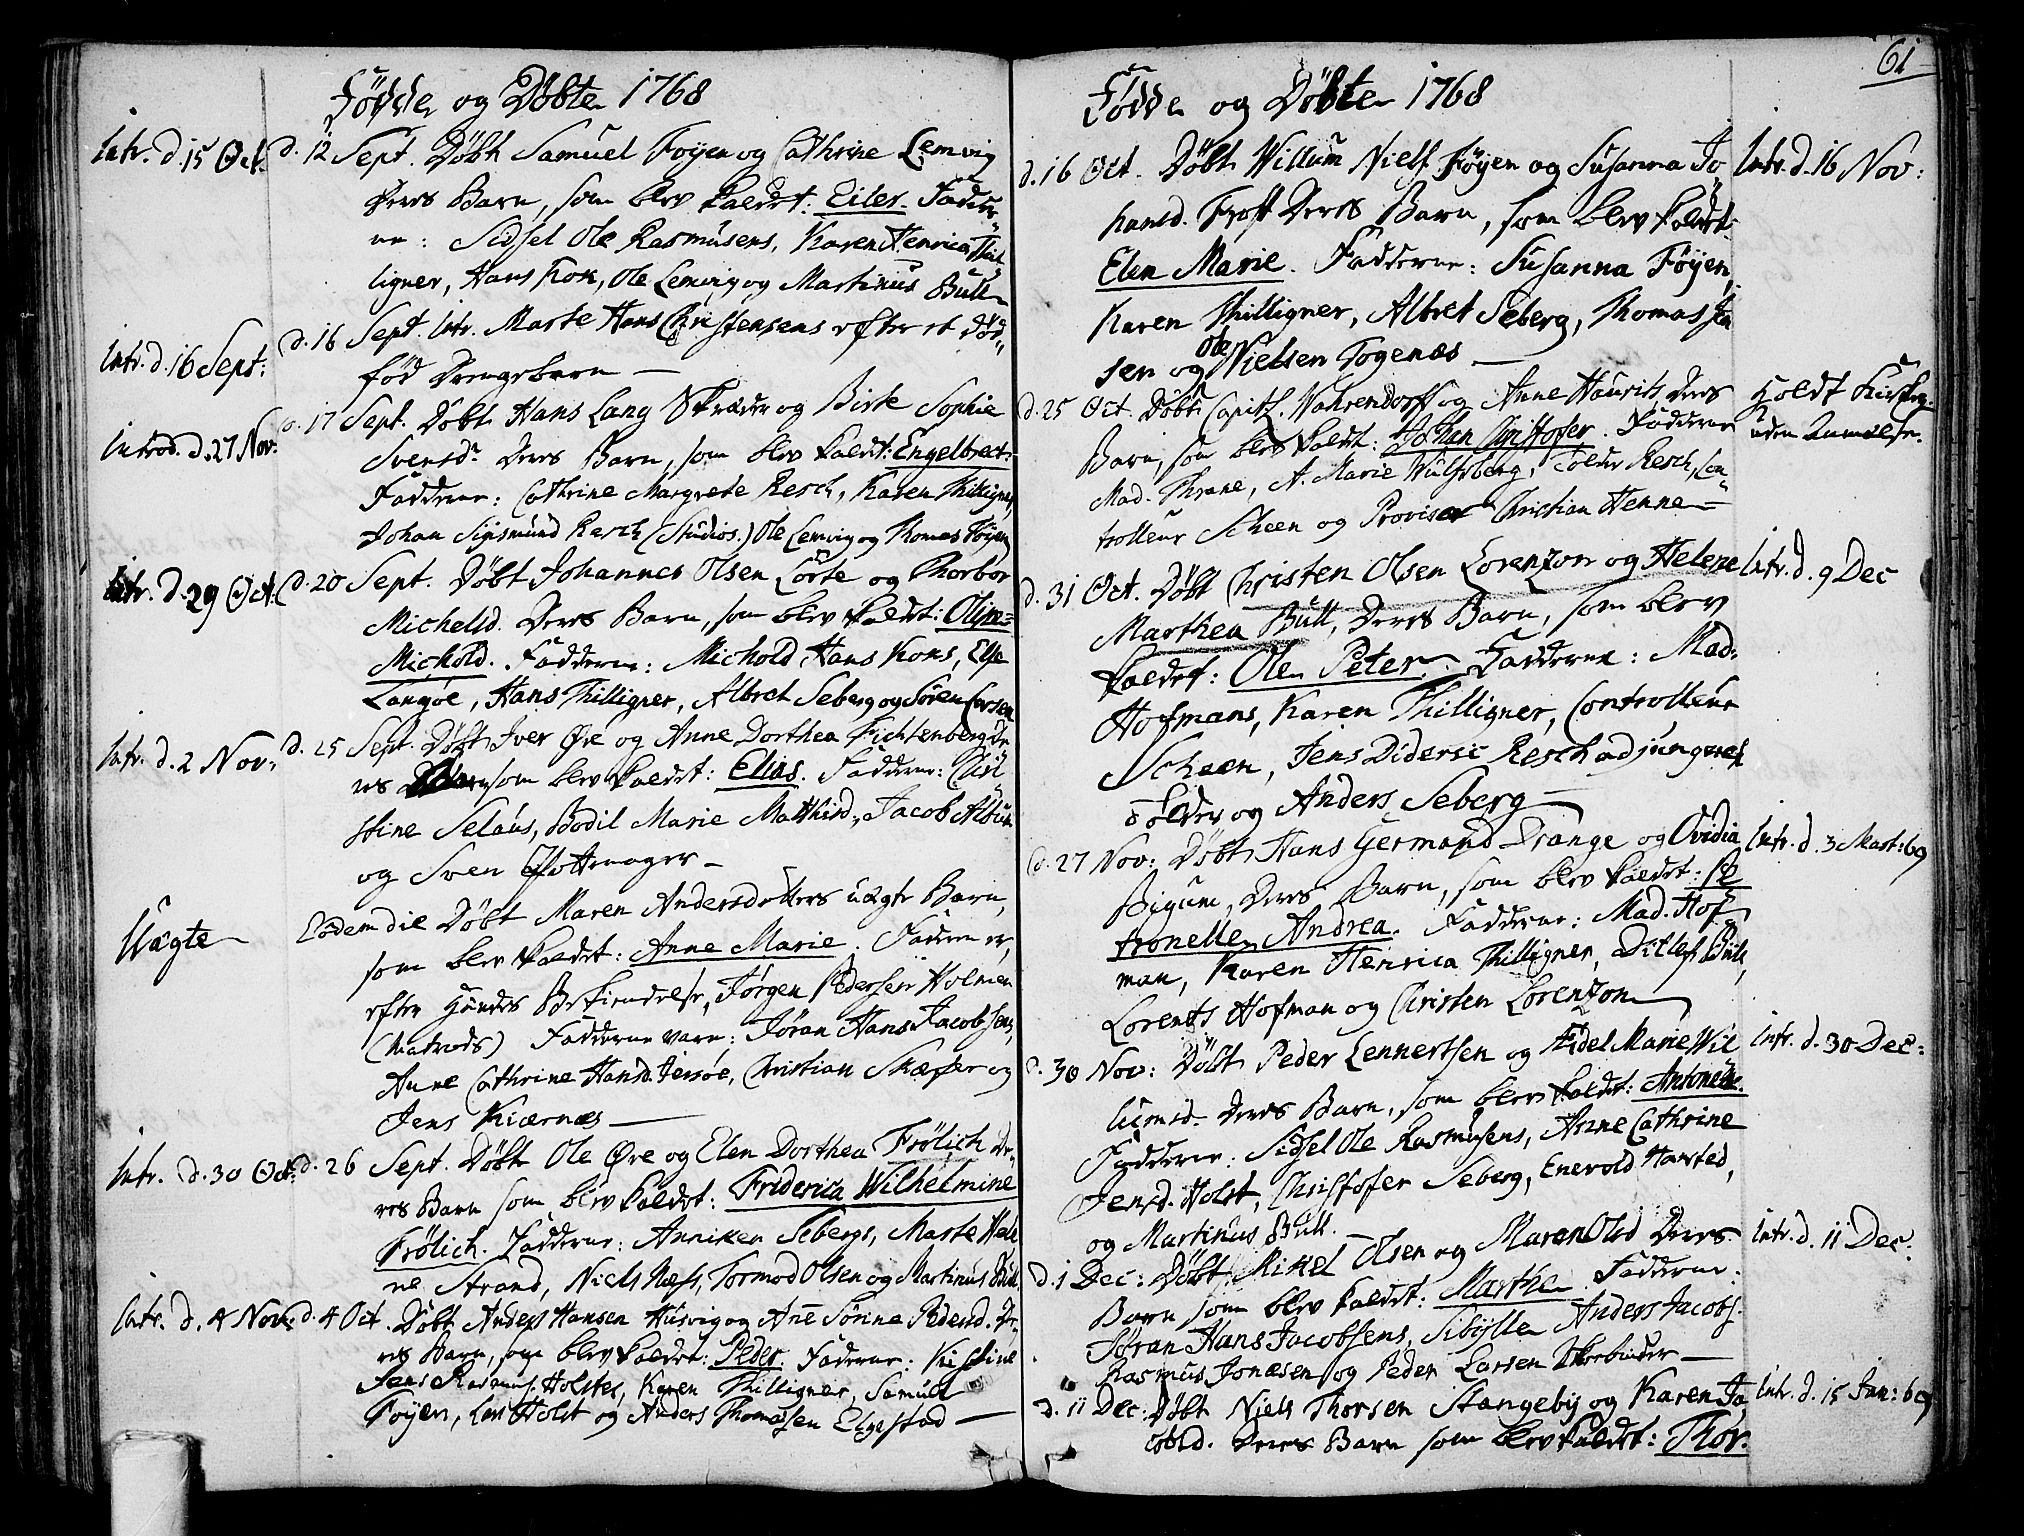 Fødde og Døbte 1768
Intr. d. 15 Oct. d. 12 Sept. Døbt Samuel Foyen og Cathrine Lemvig
Deres Barn, som blev kaldet: Eiler. Fadder„
ne: Sidsel Ole Rasmusens, Karen Henrica Thil„
ligner, Hans Kok, Ole Lemvig og Martinus Bull
Intr. d. 16 Sept: d. 16 Sept. Intr. Marte Hans Christensens efter et død„
fød Drengebarn —
Introd. d. 27 Nov: d. 17 Sept. Døbt Hans Lang Skræder og Birte Sophie
Svensdr. Deres Barn, som blev kaldet: Engelbrect.
Fadderne: Cathrine Margrete Resch, Karen Thilligner,
Johan Sigismund Resch (Studios.) Ole Lemvig og Thomas Føyen
Intr. d. 29 Oct. d. 20 Sept. Døbt Johannes Olsen Lorte og Thorbor
Michelsd. Deres Barn, som blev kaldet: Oline
Michold. Fadderne: Michold Hans Koks, Else
Langøe, Hans Thilligner, Albret Seberg og Søren Larsen
Intr. d. 2 Nov: d. 25 Sept. Døbt Iver Øre og Anne Dorthea Fichtenberg De„
res Barn som blev kaldet: Elias. Fadderne: Chri„
stine Selaus, Bodil Marie Matthisd., Jacob Album
og Sven Pottemager —
Uægte Eodem die Døbt Maren Andersdotters uægte Barn,
som blev kaldet: Anne Marie. Faderen er,
efter Hendes Bekiendelse, Jørgen Pedersen Holmen
(Matrods) Fadderne vare: Jøran Hans Jacobsens,
Anne Cathrine Hansd. Jersøe, Christian Skæfer og
Jens Kiærnæs —
Intr. d. 30 Oct: d. 26 Sept. Døbt Ole Øre og Elen Dorthea Frølich De„
res Barn som blev kaldet: Friderica Wilhelmine
Frølich. Fadderne: Anniken Sebergs, Marte Hele
ne Strand, Niels Næss, Tormod Olsen og Martinus Bull.
Intr. d. 4 Nov: d. 4 Oct. Døbt Anders Hansen Husvig og Anne Sønne Pedersd. De„
res Barn, som blev kaldet: Peder. Fadderne: Kirstine
Jens Rasmus: Holstes, Karen Thilligner, Samuel
Foyen, Lars Holst og Anders Thomassen Elgestad —
61
Fødde og Døbte 1768
d. 16 Oct. Døbt Willum Niels. Føyen og Susanna Jo„ Intr. d. 16 Nov:
hansd. Frost Deres Barn, som blev kaldet:
Elen Marie. Fadderne: Susanna Føyen,
Karen Thilligner, Albret Seberg, Thomas Jen
sen og Ole Nielsen Togenæs —
d. 25 Oct. Døbt Capitl. Wahrendorff og Anne Hauritz Deres Holdt Kirkeg.
Barn, som blev kaldet: Johan Christofer. Fadderne uden Anmelse.
Mad. Thrane, A. Marie Wulfsberg, Tolder Resch, Con„
trolleur Scheen og Provisor Christian Henne —
d. 31 Oct. Døbt Christen Olsen Lorenzon og Helene Intr. d. 9 Dec
Marthea Bull, Deres Barn, som blev
kaldet: Ole Peter. Fadderne: Mad.
Hofmans, Karen Thilligner, Controlleur
Scheen, Jens Dideric Resch adjungeret
Tolder og Anders Seberg —
d. 27 Nov: Døbt Hans Germand Drange og Ovidia Intr. d. 3 Mart: 69
Bigum, Deres Barn, som blev kaldet: Pe
tronelle Andrea. Fadderne: Mad. Hof„
man, Karen Henrica Thilligner, Ditlef Bull,
Lorents Hofman og Christen Lorenzon
d. 30 Nov: Døbt Peder Lennertsen og Fidel Marie Wil Intr. d. 30 Dec:
lumsd. Deres Barn, som blev kaldet: Antonette.
Fadderne: Sidsel Ole Rasmusens, Anne Cathrine
Jensd. Holst, Christofer Seberg, Enevold Harsted,
og Martinus Bull.
d. 1 Dec: Døbt Mikkel Olsen og Maren Olsd Deres Intr. d. 11 Dec:
Barn som blev kaldet: Marthe. Fadderne:
Jøran Hans Jacobsens, Sibylle Anders Jacobs.
Rasmus Jonæsen og Peder Larsen Skoebinder —
d. 11 Dec: Døbt Niels Thorsen Stangeby og Karen Ja„ Intr. d. 15 Jan: 69
cobsd. Deres Barn som blev kaldet: Thor.